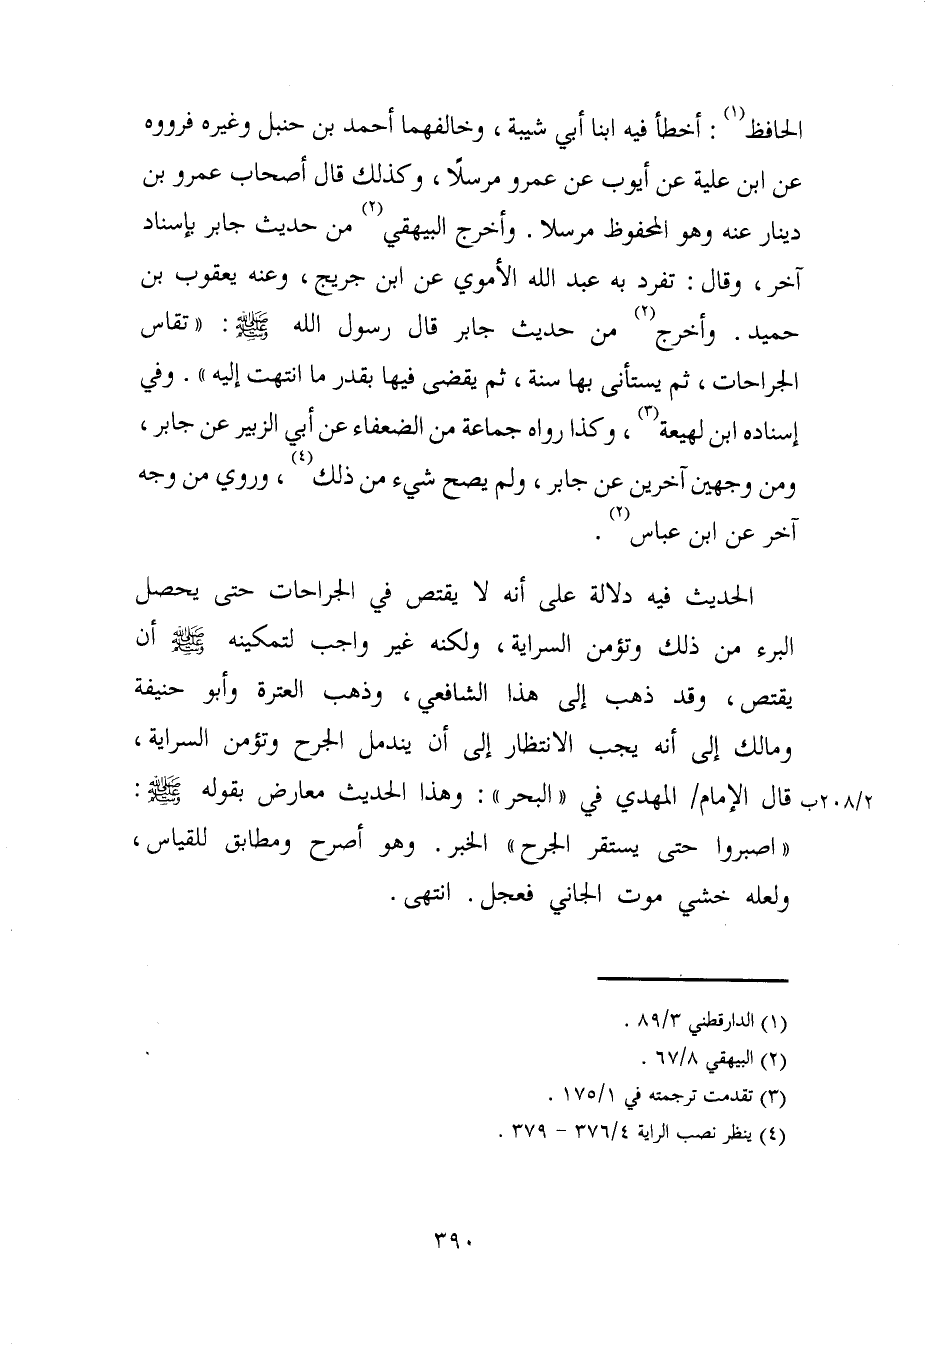 الحافظ(١) : أخطأ فيه ابنا أبي شيبة ، وخالفهما أحمد بن حنبل وغيره فرووه
عن ابن علية عن أيوب عن عمرو مرسلًا ، وكذلك قال أصحاب عمرو بن
دينار عنه وهو المحفوظ مرسلا . وأخرج البيهقي(٢) من حديث جابر بإسناد
آخر ، وقال : تفرد به عبد الله الأموي عن ابن جريج ، وعنه يعقوب بن
حميد . وأخرج(٢) من حديث جابر قال رسول الله ﷺ : « تقاس
الجراحات ، ثم يستأنى بها سنة ، ثم يقضى فيها بقدر ما انتهت إليه » . وفي
إسناده ابن لهيعة(٣) ، وكذا رواه جماعة من الضعفاء عن أبي الزبير عن جابر ،
ومن وجهين آخرين عن جابر ، ولم يصح شيء من ذلك(٤) ، وروي من وجه
آخر عن ابن عباس(٢) .
الحديث فيه دلالة على أنه لا يقتص في الجراحات حتى يحصل
البرء من ذلك وتؤمن السراية ، ولكنه غير واجب لتمكينه ﷺ أن
يقتص ، وقد ذهب إلى هذا الشافعي ، وذهب العترة وأبو حنيفة
ومالك إلى أنه يجب الانتظار إلى أن يندمل الجرح وتؤمن السراية ،
٢٠٨/٢ب قال الإمام/ المهدي في « البحر » : وهذا الحديث معارض بقوله ﷺ :
« اصبروا حتى يستقر الجرح » الخبر . وهو أصرح ومطابق للقياس ،
ولعله خشي موت الجاني فعجل . انتهى .
(١) الدارقطني ٨٩/٣ .
(٢) البيهقي ٦٧/٨ .
(٣) تقدمت ترجمته في ١٧٥/١ .
(٤) ينظر نصب الراية ٣٧٦/٤ – ٣٧٩ .
٣٩٠